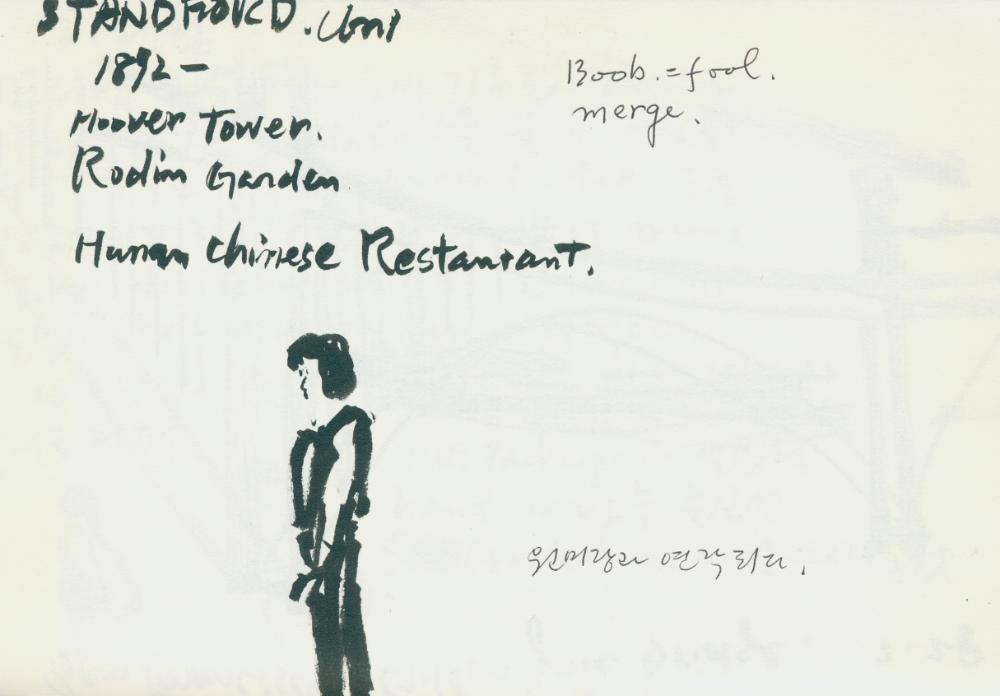 STANDFORD. Uni
1892 –
Hoover Tower.
Rodin Garden
Hunan Chinese Restaurant.
Boob. = fool.
merge.
연락되다.